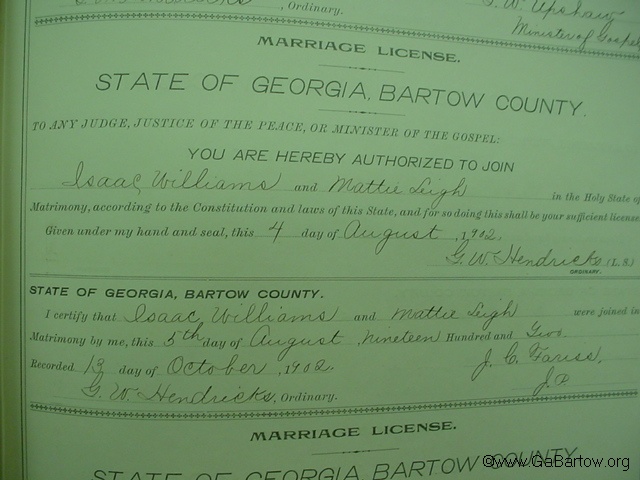 , Ordinary.
J. W. Upshaw
Minister of Gospel
MARRIAGE LICENSE.
STATE OF GEORGIA, BARTOW COUNTY.
TO ANY JUDGE, JUSTICE OF THE PEACE, OR MINISTER OF THE GOSPEL:
YOU ARE HEREBY AUTHORIZED TO JOIN
Isaac Williams and Mattie Leigh in the Holy State of
Matrimony, according to the Constitution and laws of this State, and for so doing this shall be your sufficient license
Given under my hand and seal, this 4 day of August, 1902,
G. W. Hendricks (L. S.)
ORDINARY.
STATE OF GEORGIA, BARTOW COUNTY.
I certify that Isaac Williams and Mattie Leigh were joined in
Matrimony by me, this 5th day of August, nineteen Hundred and Two.
Recorded 13 day of October, 1902.
J. C. Fariss,
J. P.
G. W. Hendricks, Ordinary.
MARRIAGE LICENSE.
STATE OF GEORGIA, BARTOW COUNTY.
©www.GaBartow.org